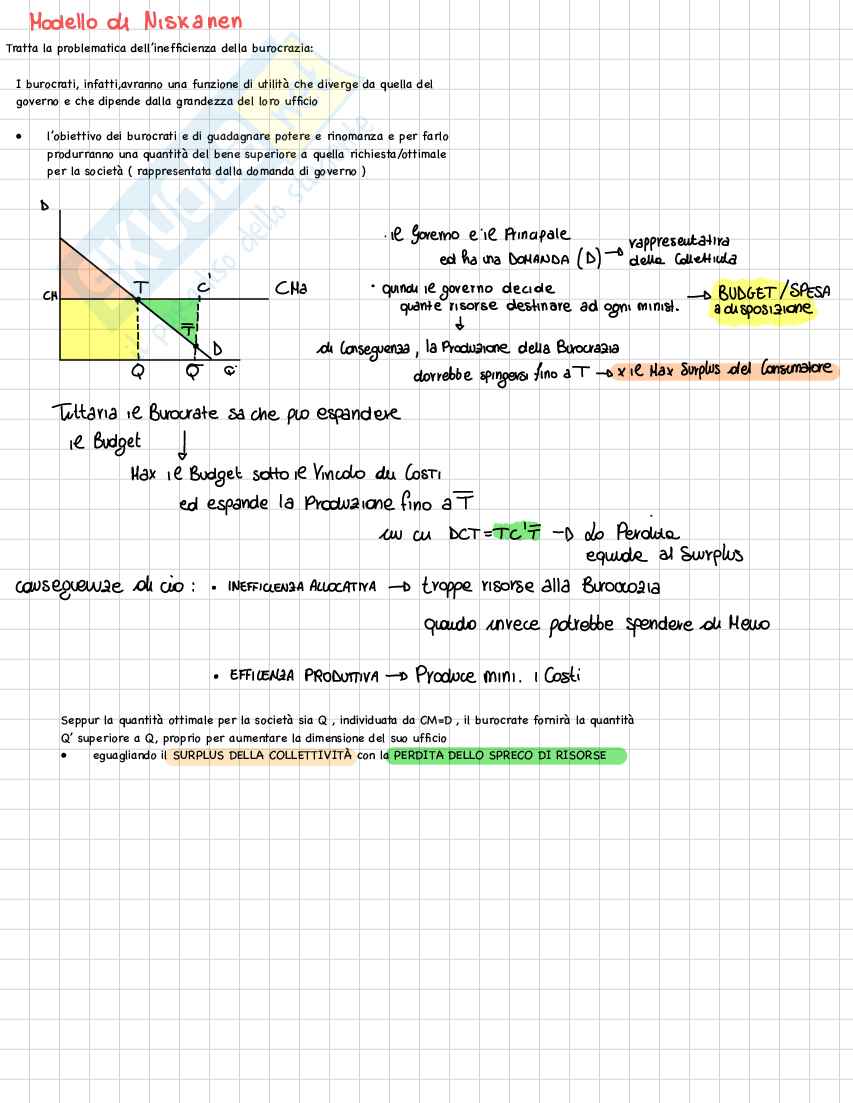 Modello di Niskanen
Tratta la problematica dell'inefficienza della burocrazia:
I burocrati, infatti,avranno una funzione di utilità che diverge da quella del
governo e che dipende dalla grandezza del loro ufficio
• l'obiettivo dei burocrati e di guadagnare potere e rinomanza e per farlo
produrranno una quantità del bene superiore a quella richiesta/ottimale
per la società ( rappresentata dalla domanda di governo )
D
CM
T
C'
CMa
T̅
D
Q
Q̅
Q'
· il Governo e' il Principale
ed ha una DOMANDA (D) → rappresentativa
della Collettività
· quindi il governo decide
quante risorse destinare ad ogni minist. → BUDGET/SPESA
a disposizione
↓
di Conseguenza, la Produzione della Burocrazia
dovrebbe spingersi fino a T → x il Max Surplus del Consumatore
Tuttavia il Burocrate sa che può espandere
il Budget
↓
Max il Budget sotto il Vincolo dei Costi
ed espande la Produzione fino a T̅
in cui DCT = TC'T̅ → La Perdita
equivale al Surplus
conseguenze di ciò: • INEFFICIENZA ALLOCATIVA → troppe risorse alla Burocrazia
quando invece potrebbe spendere di Meno
• EFFICENZA PRODUTTIVA → Produce mini. i Costi
Seppur la quantità ottimale per la società sia Q , individuata da CM=D , il burocrate fornirà la quantità
Q' superiore a Q, proprio per aumentare la dimensione del suo ufficio
• eguagliando il SURPLUS DELLA COLLETTIVITÀ con la PERDITA DELLO SPRECO DI RISORSE